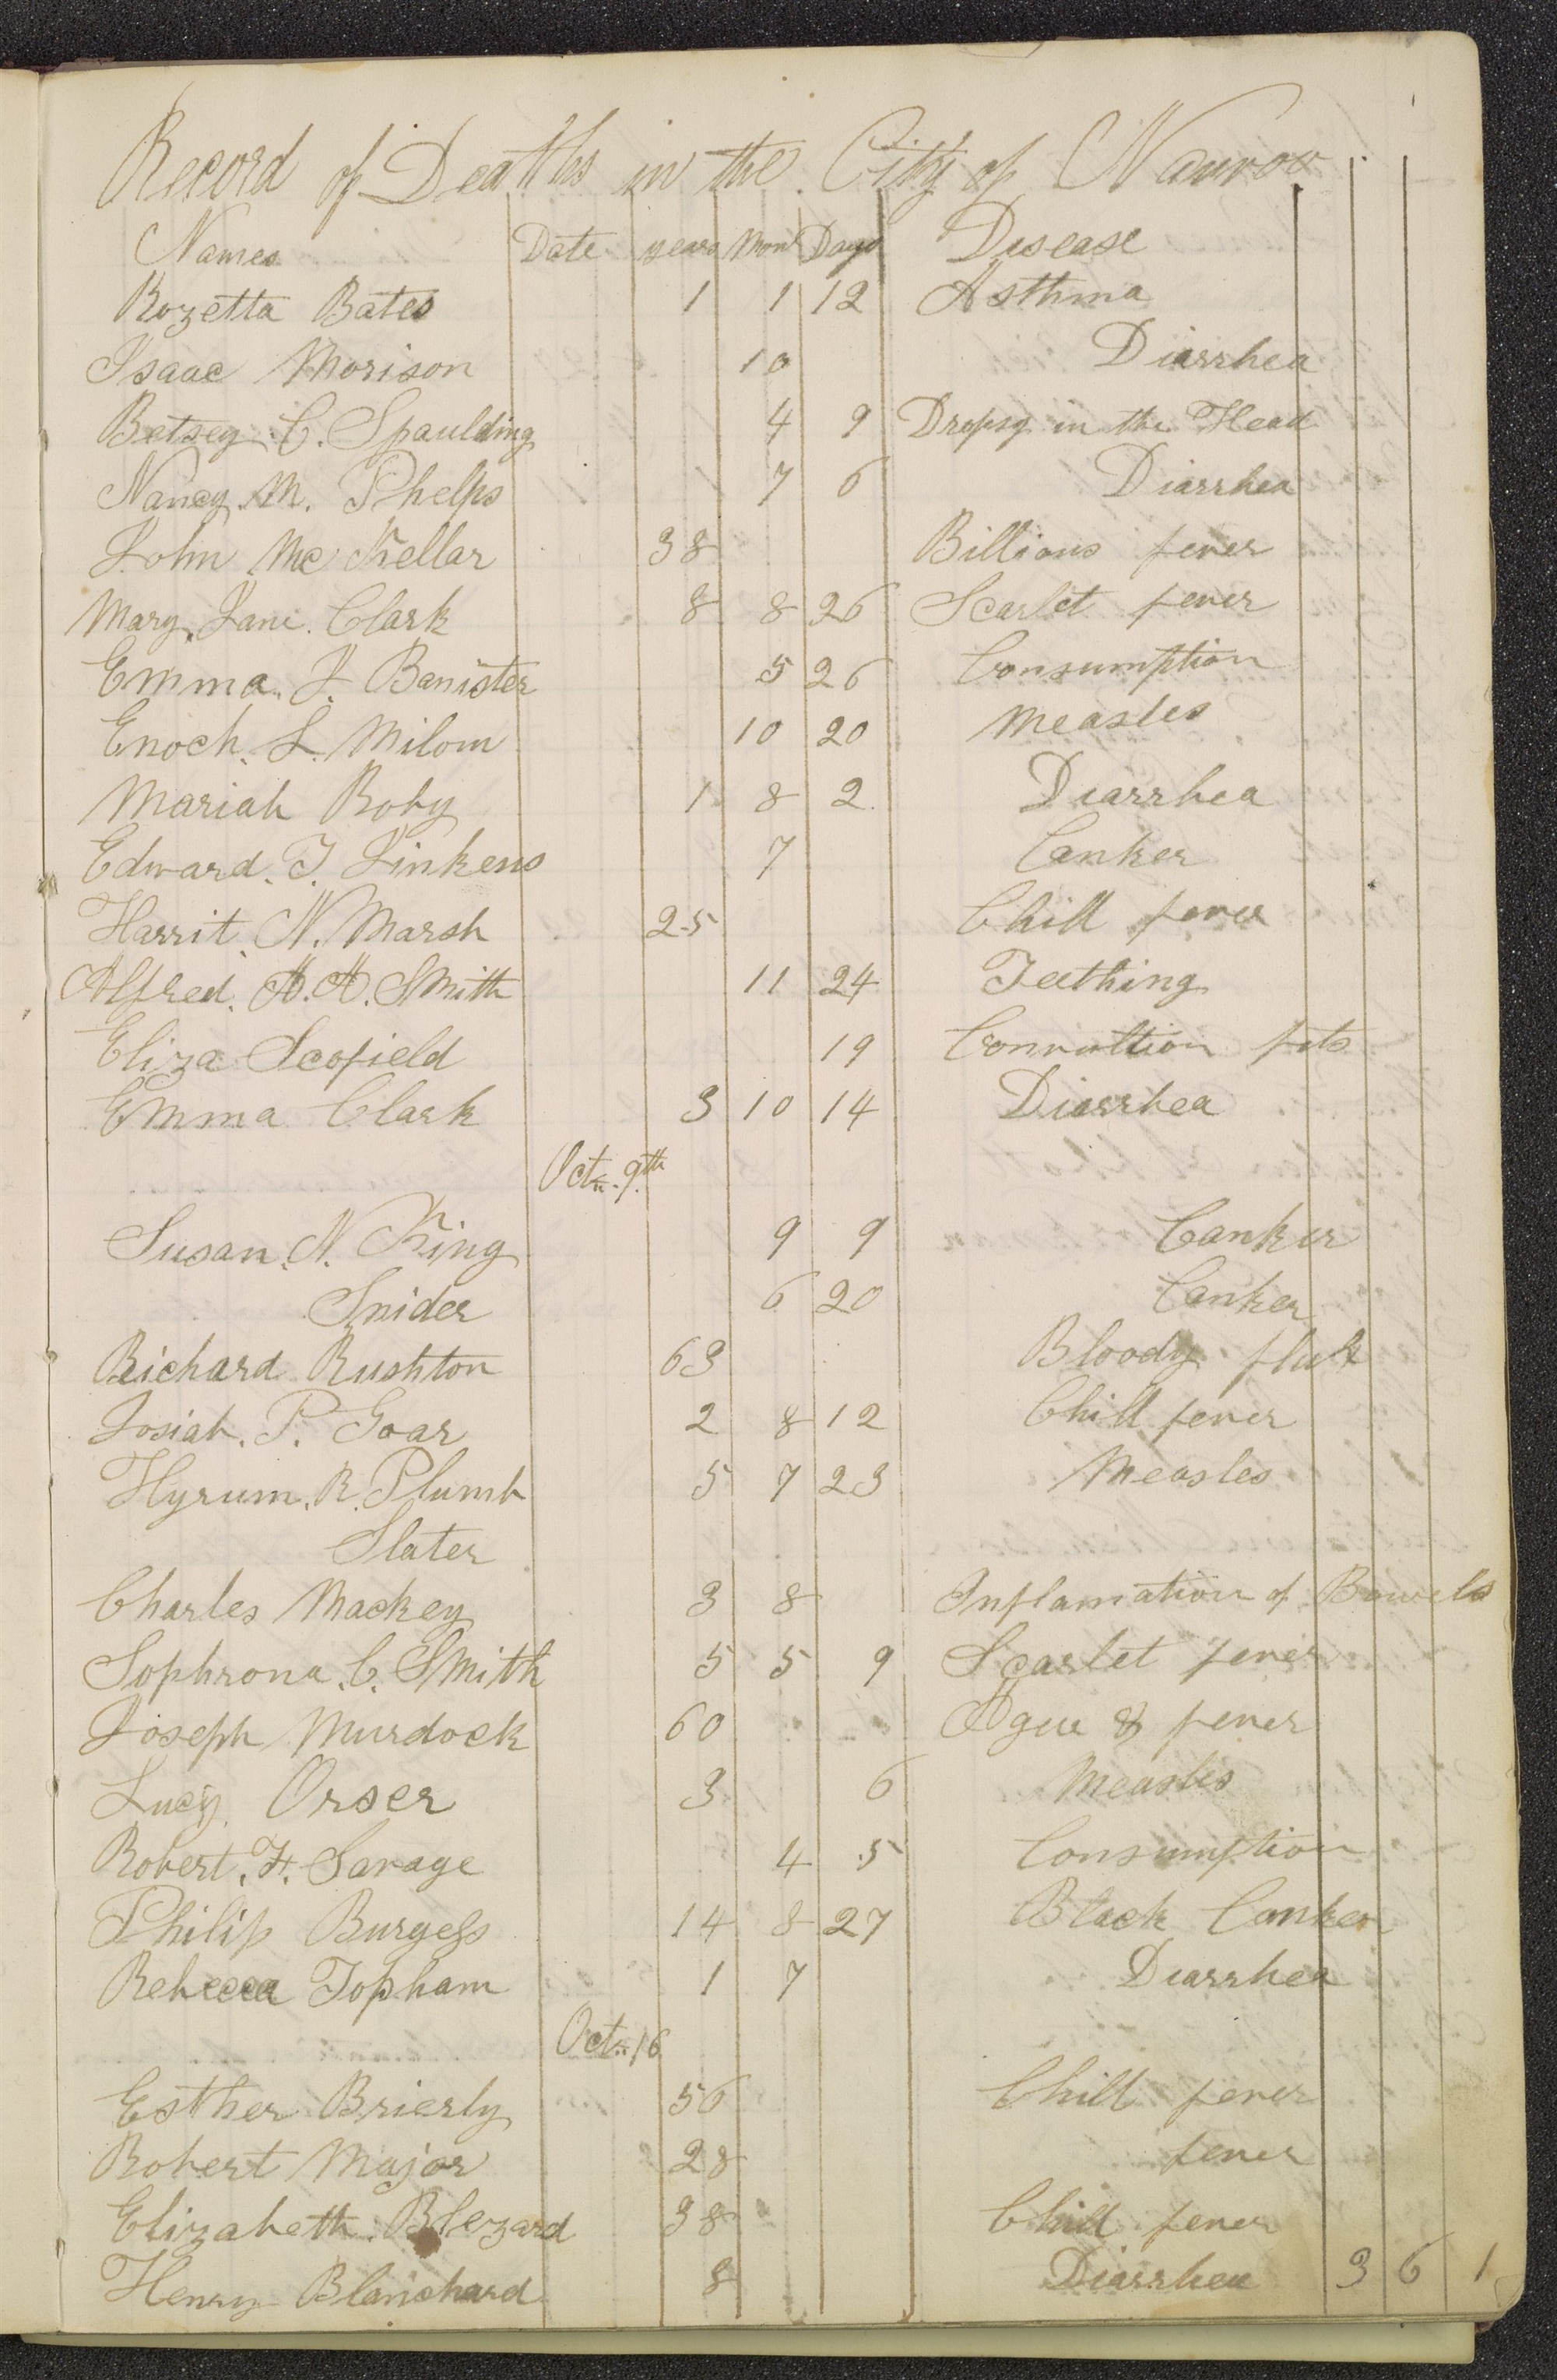 Record of Deaths in the City of Nauvoo
Names Date years Mon Days Disease
Rozetta Bates 1 1 12 Asthma
Isaac Morison 10 Diarrhea
Betsey C. Spaulding 4 9 Dropsy in the Head
Nancy M. Phelps 7 6 Diarrhea
John Mc Kellar 38 Billious fever
Mary Jane Clark 8 8 26 Scarlet fever
Emma J. Banister 5 26 Consumption
Enoch L. Milom 10 20 Measles
Mariah Roby 1 8 2 Diarrhea
Edward T. Linkens 7 Canker
Harrit N. Marsh 25 Chill fever
Alfred A. A. Smith 11 24 Teething
Eliza Scofield 19 Convultion fits
Emma Clark 3 10 14 Diarrhea
Oct. 9th
Susan N. King 9 9 Canker
Snider 6 20 Canker
Richard Rushton 63 Bloody
Josiah P. Goar 2 8 12 Chill fever
Hyrum R. Plumb 5 7 23 Measles
Slater
Charles Mackey 3 8 Inflamation of Bowels
Sophrona C. Smith 5 5 9 Scarlet fever
Joseph Murdock 60 Ague & fever
Lucy Orser 3 6 Measles
Robert F. Savage 4 5 Consumption
Philip Burgess 14 8 27 Black Canker
Rebecca Topham 1 7 Diarrhea
Oct. 16
Esther Brierly 56 Chill fever
Robert Major 28 fever
Elizabeth Blezard 38 Chill fever
Henry Blanchard 8 Diarrhea 3 6 1